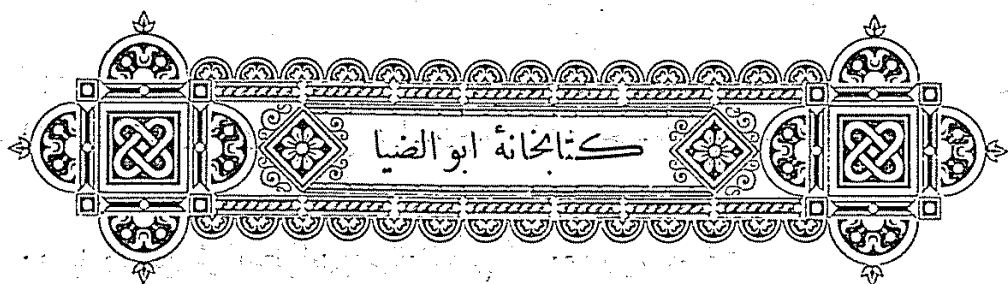 كتابخانۀ ابو الضيا